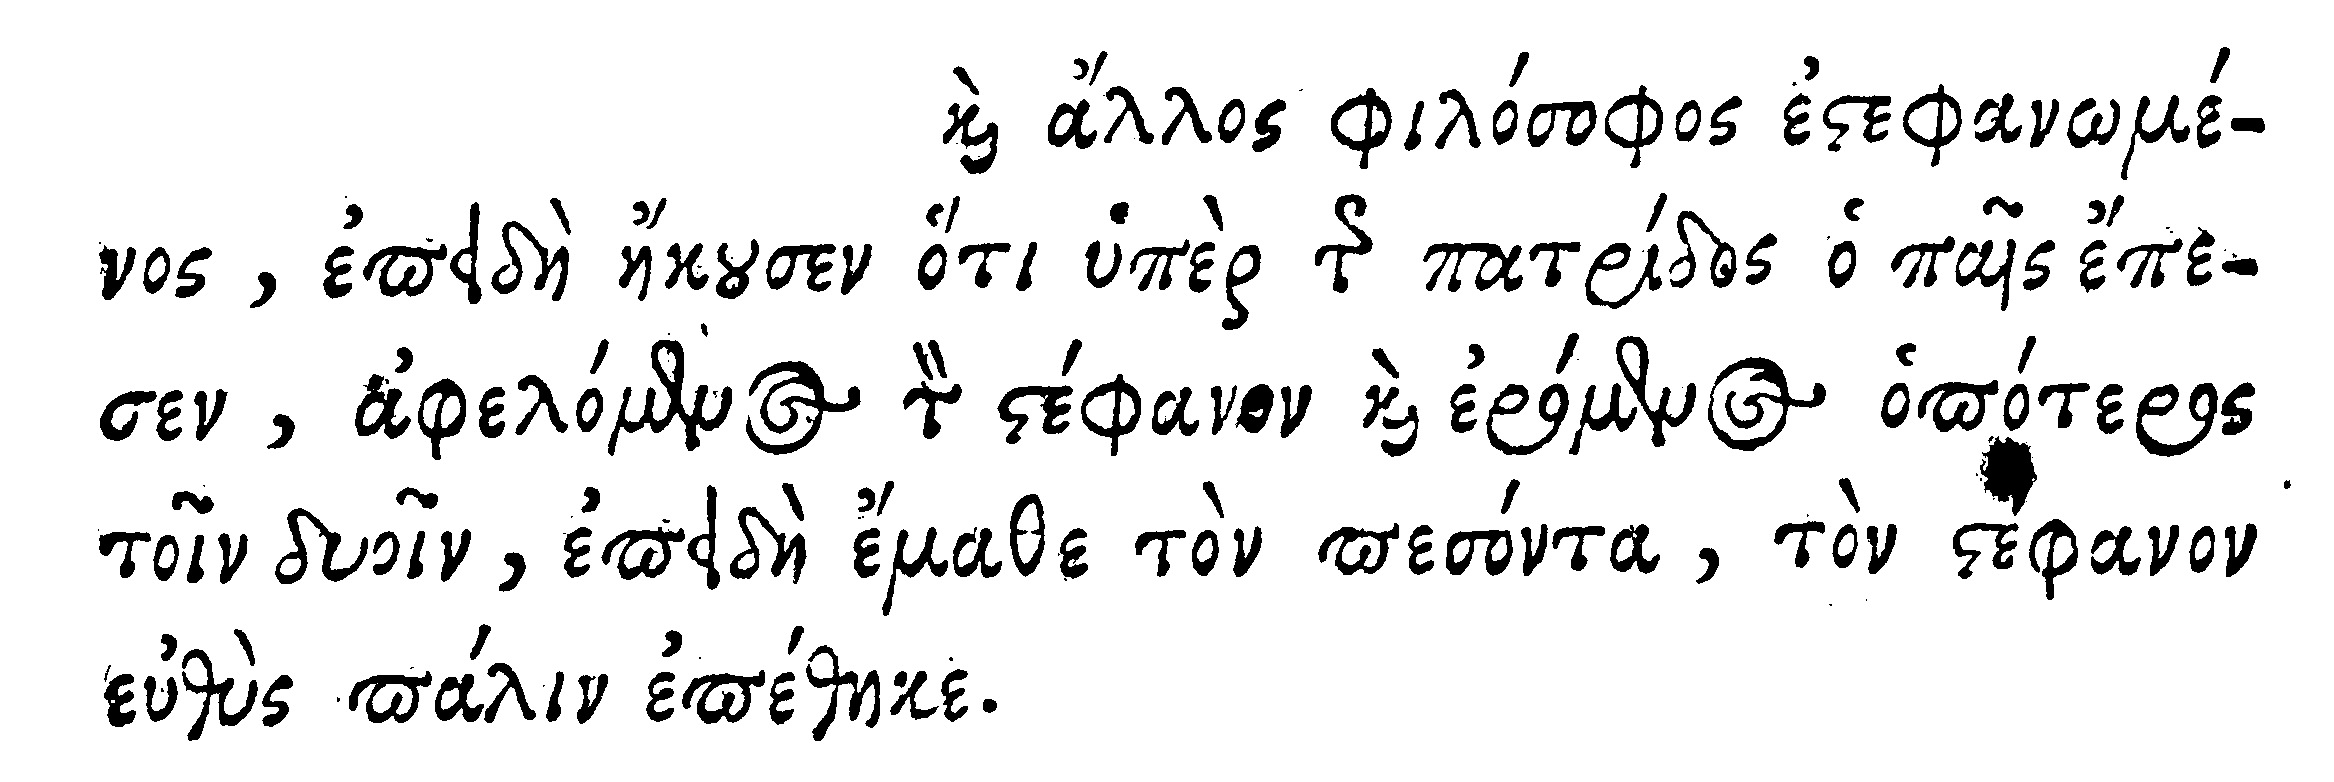 καὶ ἄλλος φιλόσοφος ἐστεφανωμέ-
νος, ἐπειδὴ ἤκουσεν ὅτι ὑπὲρ τῆς πατρίδος ὁ παῖς ἔπε-
σεν, ἀφελόμενος τὸν στέφανον καὶ ἐρόμενος ὁπότερος
τοῖν δυοῖν, ἐπειδὴ ἔμαθε τὸν πεσόντα, τὸν στέφανον
εὐθὺς πάλιν ἐπέθηκε.